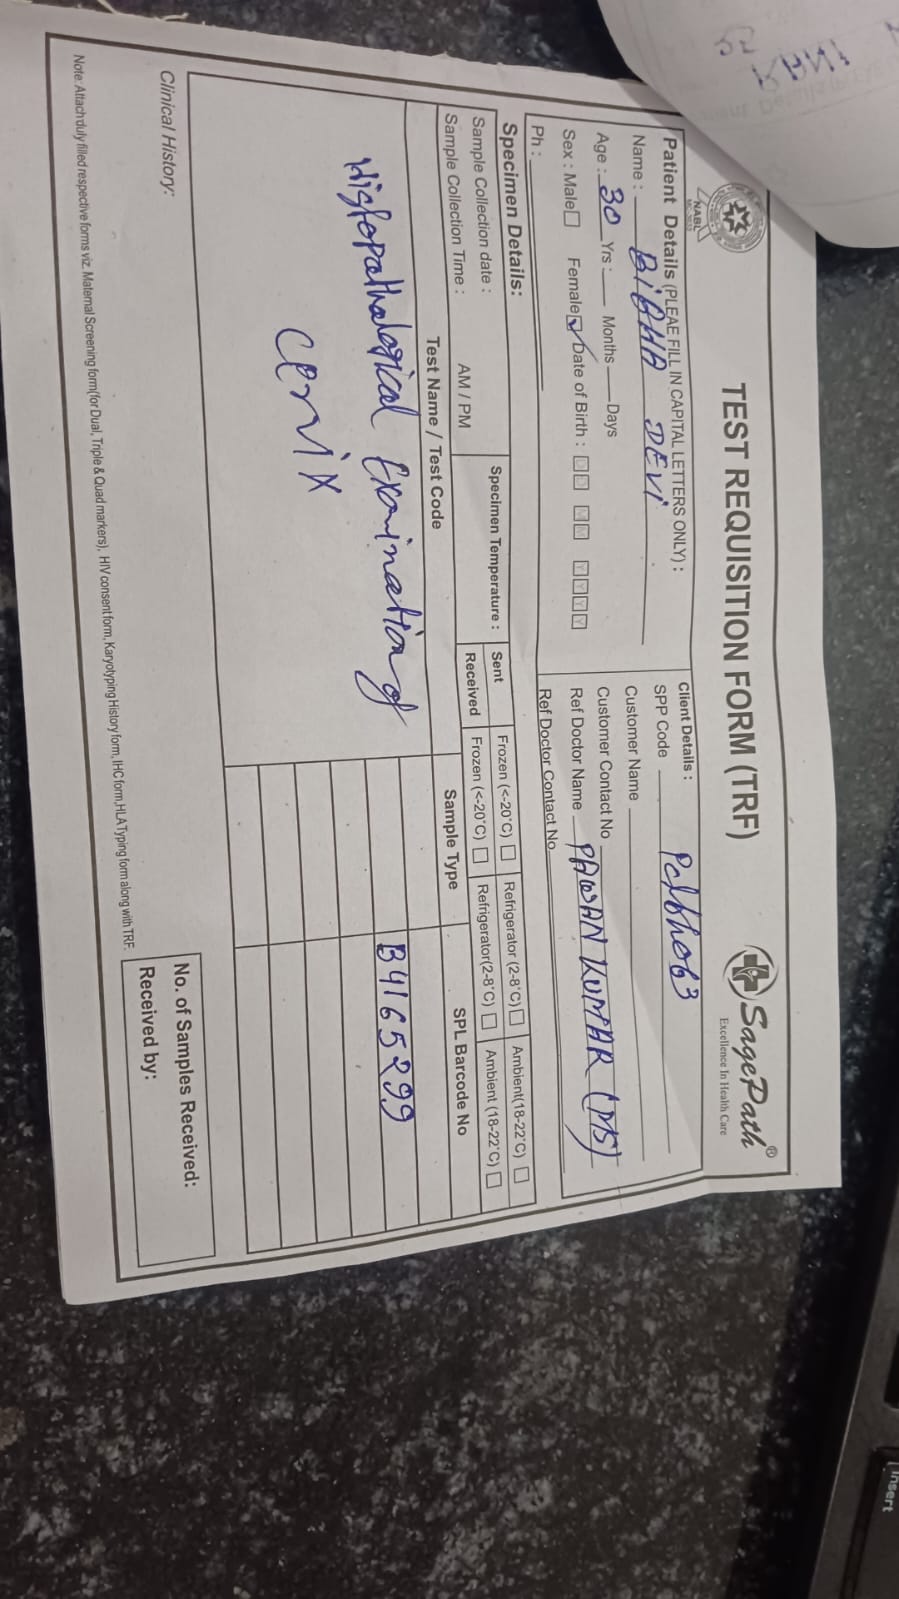 TEST REQUISITION FORM (TRF)
NABL
SagePath®
Excellence In Health Care
Patient Details (PLEAE FILL IN CAPITAL LETTERS ONLY) :
Name : DEVi
Age : 30 Yrs : Months Days
Sex : Male Female Date of Birth : D D M M Y Y Y Y
Ph :
Client Details :
SPP Code
Customer Name
Customer Contact No
Ref Doctor Name PAWAN KUMAR (MS)
Ref Doctor Contact No
Specimen Details:
Sample Collection date :
Sample Collection Time : AM / PM
Specimen Temperature :
Sent Frozen (<-20°C) Refrigerator (2-8°C) Ambient(18-22°C)
Received Frozen (<-20°C) Refrigerator(2-8°C) Ambient (18-22°C)
Test Name / Test Code Sample Type SPL Barcode No
Histopathological Examination of B4165299
Cervix
Clinical History:
No. of Samples Received:
Received by:
Note: Attach duly filled respective forms viz. Maternal Screening form(for Dual, Triple & Quad markers), HIV consent form, Karyotyping History form, IHC form,HLA Typing form along with TRF.
Insert